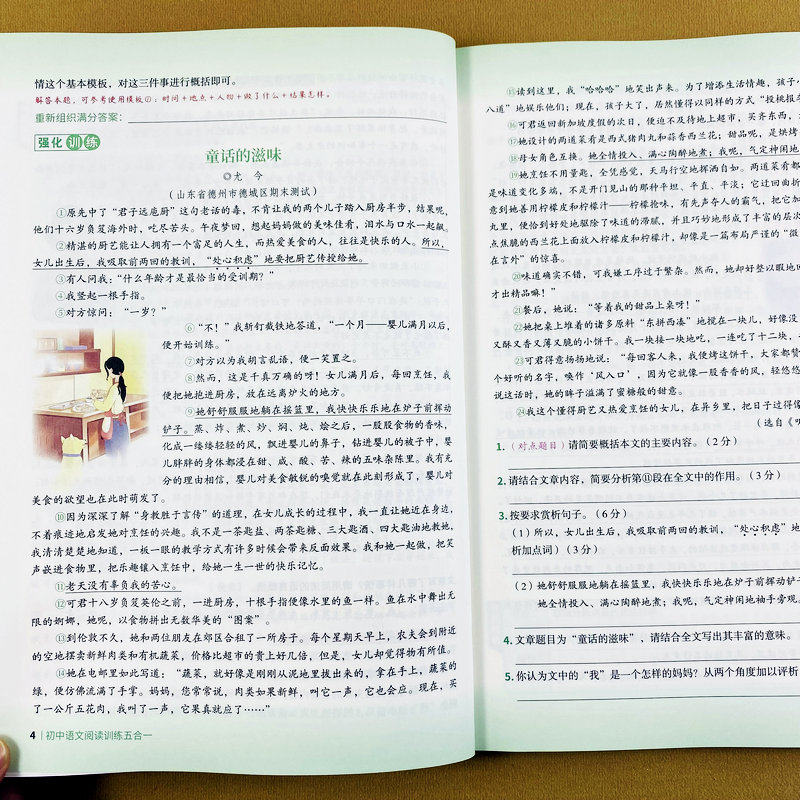 情这个基本模板，对这三件事进行概括即可。
解答本题，可参考使用模板①：时间+地点+人物+做了什么+结果怎样。
重新组织满分答案：
强化训练
童话的滋味
◎尤 今
（山东省德州市德城区期末测试）
①原先中了“君子远庖厨”这句老话的毒，不肯让我的两个儿子踏入厨房半步，结果呢，
他们十六岁负笈海外时，吃尽苦头。午夜梦回，想起妈妈做的美味佳肴，泪水与口水一起飙。
②精湛的厨艺能让人拥有一个富足的人生，而热爱美食的人，往往是快乐的人。所以，
女儿出生后，我吸取前两回的教训，“处心积虑”地要把厨艺传授给她。
③有人问我：“什么年龄才是最恰当的受训期？”
④我竖起一根手指。
⑤对方惊问：“一岁？”
⑥“不！”我斩钉截铁地答道，“一个月——婴儿满月以后，
便开始训练。”
⑦对方以为我胡言乱语，便一笑置之。
⑧然而，这是千真万确的呀！女儿满月后，每回烹饪，我
便把她抱进厨房，放在远离炉火的地方。
⑨她舒舒服服地躺在摇篮里，我快快乐乐地在炉子前挥动
铲子。蒸、炸、煮、炒、焖、炖、烩之后，一股股食物的香味，
化成一缕缕轻轻的风，飘进婴儿的鼻子，钻进婴儿的被子中，婴
儿胖胖的身体都浸在甜、咸、酸、苦、辣的五味杂陈里。我有充
分的理由相信，婴儿对美食敏锐的嗅觉就在此刻形成了，婴儿对
美食的欲望也在此时萌发了。
⑩因为深深了解“身教胜于言传”的道理，在女儿成长的过程中，我一直让她近在身边，
不着痕迹地启发她对烹饪的兴趣。我不是一茶匙盐、两茶匙糖、三大匙酒、四大匙油地教她，
我清清楚楚地知道，一板一眼的教学方式有许多时候会带来反面效果。我和她一起做，把笑
声嵌进食物里，把乐趣镶入烹饪中，给她一生一世的快乐记忆。
⑪老天没有辜负我的苦心。
⑫可君十八岁负笈英伦之前，一进厨房，十根手指便像水里的鱼一样。鱼在水中舞出无
限的婀娜，她呢，以食物拼出无数华美的“图案”。
⑬到伦敦不久，她和两位朋友在郊区合租了一所房子。每个星期天早上，农夫会到附近
的空地摆卖新鲜肉类和有机蔬菜，价格比超市的贵上好几倍，但是，女儿却觉得物有所值。
⑭她在电邮里如此写道：“蔬菜，就好像是刚刚从泥地里拔出来的，拿在手上，蔬菜的
绿，便仿佛流满了手掌。妈妈，您常常说，肉类如果新鲜，叫它一声，它也会应。现在，买
了一公斤五花肉，我叫了一声，它果真就应了……”
4 | 初中语文阅读训练五合一
⑮读到这里，我“哈哈哈”地笑出声来。为了增添生活情趣，孩子小
八道”地娱乐他们；现在，孩子大了，居然懂得以同样的方式“投桃报李
⑯可君返回新加坡度假的次日，便迫不及待地上超市，买齐东西，
⑰她设计的两道菜肴是西式猪肉丸和蒜香西兰花；甜品呢，是烘烤
⑱母女角色互换。她全情投入、满心陶醉地煮；我呢，气定神闲地
⑲她烹饪不用量匙，全凭感觉，天马行空地挥洒自如。两道菜肴都
是味道变化多端，不是开门见山的那种平坦、平直、平淡；它过回曲折
意到她善用柠檬皮和柠檬汁——柠檬抢味，有先声夺人的霸气，把它加
九里，便恰到好处地驱除了味道的滞腻，并且巧妙地形成了丰富的层次
点焦脆的西兰花上面放入柠檬皮和柠檬汁，却像是一篇布局严谨的“微
在言外”的惊喜。
⑳味道确实不错，可我嫌工序过于繁杂。然而，她却好整以暇地回
才出精品嘛！”
㉑餐后，她说：“等着我的甜品上桌呀！”
㉒她把桌上堆着的诸多原料“东拼西凑”地搅在一块儿，好像没
又酥又香又薄又脆的小饼干。我一块接一块地吃，一连吃了十二块，
㉓可君得意扬扬地说：“每回客人来，我便烤这饼干，大家都赞
个好听的名字，唤作‘风入口’，因为它就像一股香香的风，轻悠悠
说这话时，她的眸子溢满了蜜糖般的甜意。
㉔我这个懂得厨艺又热爱烹饪的女儿，在异乡里，把日子过得像
（选自《
1.（对点题目）请简要概括本文的主要内容。（2分）
2.请结合文章内容，简要分析第⑪段在全文中的作用。（3分）
3.按要求赏析句子。（6分）
（1）所以，女儿出生后，我吸取前两回的教训，“处心积虑”地
析加点词）（3分）
（2）她舒舒服服地躺在摇篮里，我快快乐乐地在炉子前挥动铲
她全情投入、满心陶醉地煮；我呢，气定神闲地袖手旁观。
4.文章题目为“童话的滋味”，请结合全文写出其丰富的意味。
5.你认为文中的“我”是一个怎样的妈妈？从两个角度加以评析